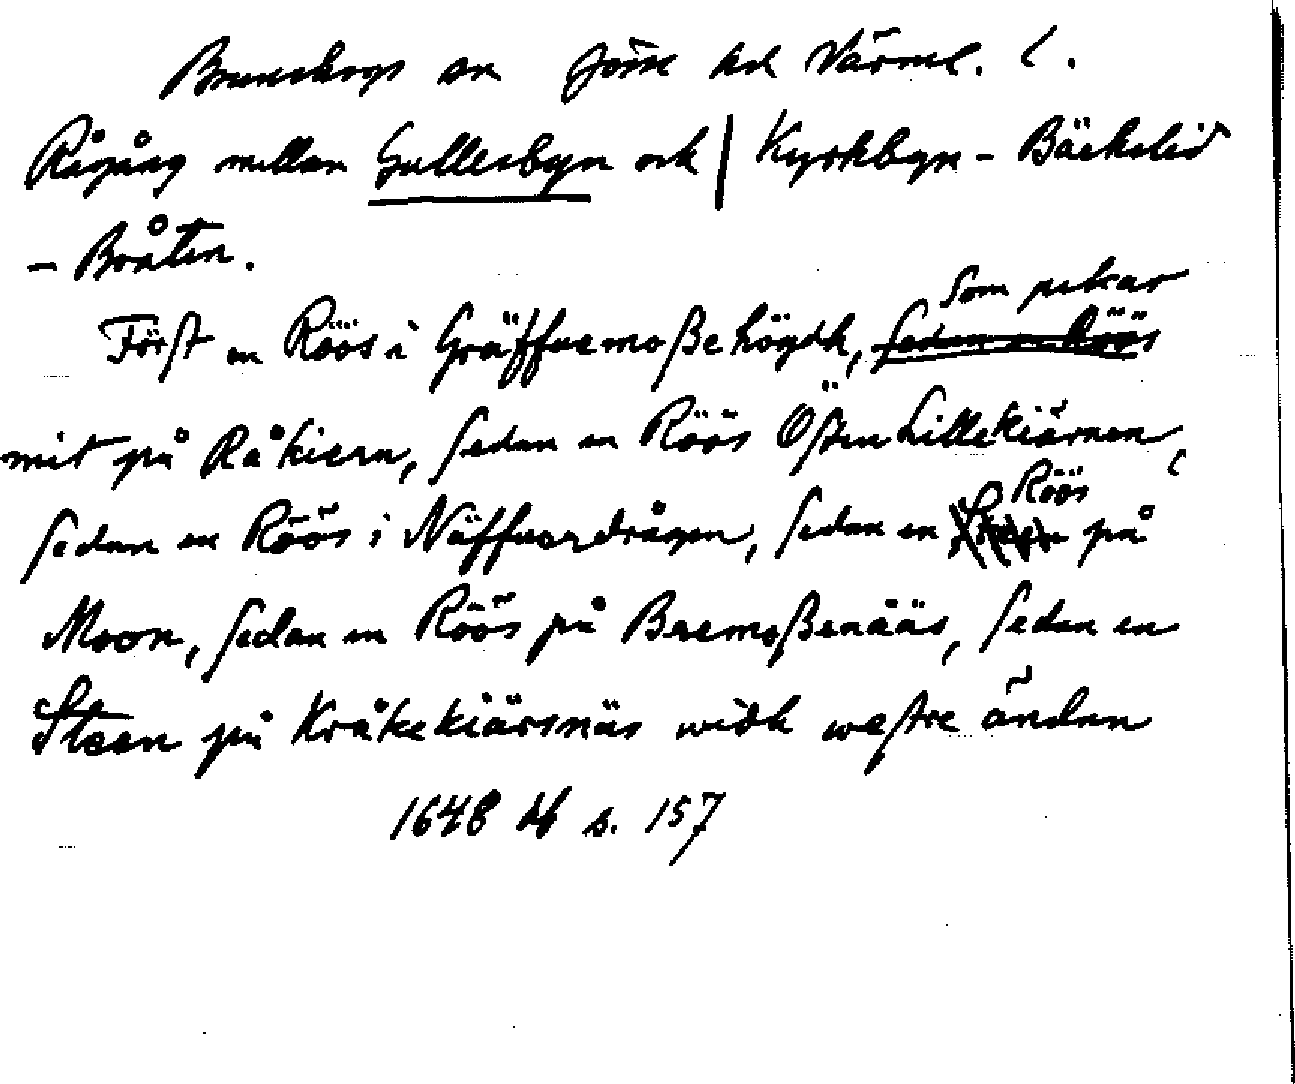 Brunskogs sn Jösse hd Värml. l.
Rågång mellan Gullersbyn och | Kyrkbyn - Bäckelid
- Bråten.
som pekar
Först en Röös i Gräffuemoßehögdh, sedan en Röös
mit på Råkiern, sedan en Röös Östen Lillekiärnen,
Röös
sedan en Röös i Näffuerdrågen, sedan en på
Moon, sedan en Röös på Baemoßenääs, sedan en
Steen på Kråkekiärsnäs widh westre änden
1648 s. 157